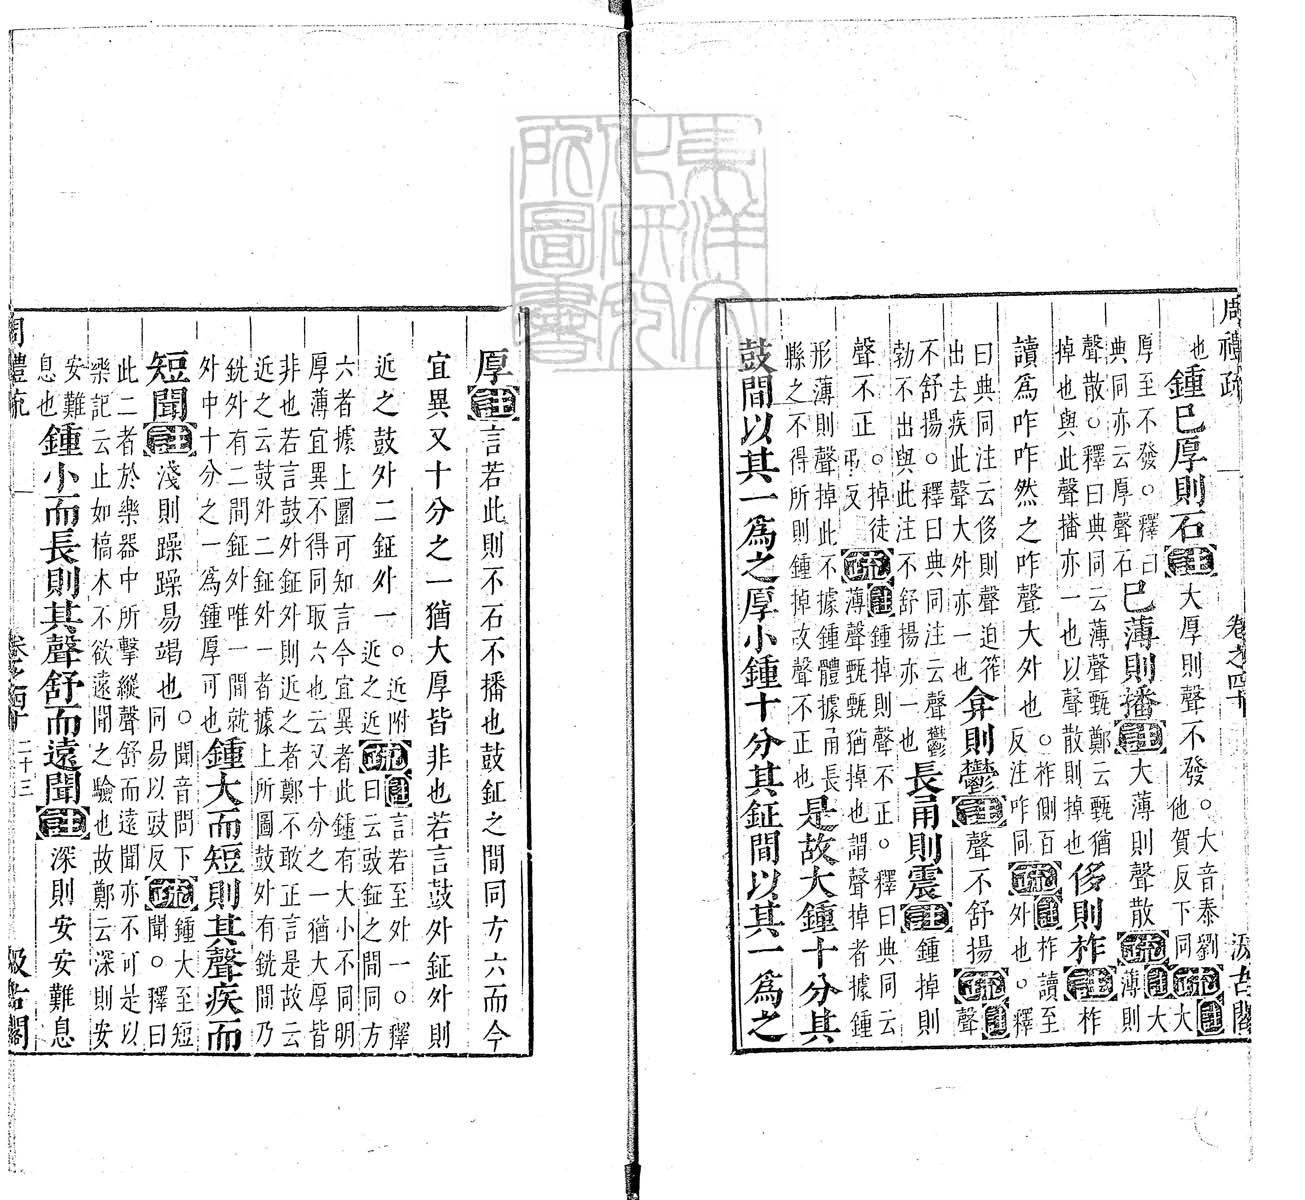 周禮疏 卷之四十 汲古閣
也鍾已厚則石註大厚則聲不發○大音泰劉他賀反下同疏註大
厚至不發○釋曰典同亦云厚聲石已薄則播註大薄則聲散疏註大薄則
聲散○釋曰典同云薄聲甄鄭云甄猶掉也與此聲播亦一也以聲散則掉也侈則柞註柞
讀爲咋咋然之咋聲大外也○柞側百反注咋同疏註柞讀至外也○釋
曰典同注云侈則聲迫笮出去疾此聲大外亦一也弇則鬱註聲不舒揚疏註聲
不舒揚○釋曰典同注云聲鬱勃不出與此注不舒揚亦一也長甬則震註鍾掉則
聲不正○掉徒弔反疏註鍾掉則聲不正○釋曰典同云薄聲甄甄猶掉也謂聲掉者據鍾
形薄則聲掉此不據鍾體據甬長縣之不得所則鍾掉故聲不正也是故大鍾十分其
鼓間以其一爲之厚小鍾十分其鉦間以其一爲之
厚註言若此則不石不播也鼓鉦之間同方六而今
宜異又十分之一猶大厚皆非也若言鼓外鉦外則
近之鼓外二鉦外一○近附近之近疏註言若至外一○釋曰云鼓鉦之間同方
六者據上圖可知言今宜異者此鍾有大小不同明厚薄宜異不得同取六也云又十分之一猶大厚皆
非也若言鼓外鉦外則近之者鄭不敢正言是故云近之云鼓外二鉦外一者據上所圖鼓外有銑間乃
銑外有二間鉦外唯一間就外中十分之一爲鍾厚可也鍾大而短則其聲疾而
短聞註淺則躁躁易竭也○聞音問下同易以豉反疏鍾大至短聞○釋曰
此二者於樂器中所擊縱聲舒而遠聞亦不可是以樂記云止如槁木不欲遠聞之驗也故鄭云深則安
安難息也鍾小而長則其聲舒而遠聞註深則安安難息
周禮疏 卷之四十 二十三 汲古閣
東洋文化研究所圖書